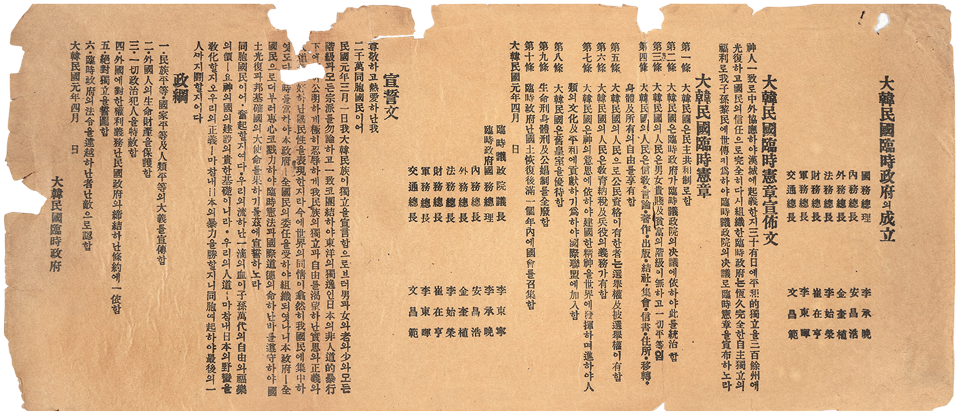 大韓民國臨時政府의成立
國務總理 李承晩
內務總長 安昌浩
外務總長 金奎植
法務總長 李始榮
財務總長 崔在亨
軍務總長 李東暉
交通總長 文昌範
大韓民國臨時憲章宣佈文
神人一致로中外協應하야漢城에起義한지三十有日에平和的獨立을三百餘州에
光復하고國民의信任으로完全히다시組織한臨時政府는恒久完全한自主獨立의
福利로我子孫黎民에世傳키爲하야臨時議政院의決議로臨時憲章을宣布하노라
大韓民國臨時憲章
第一條 大韓民國은民主共和制로함
第二條 大韓民國은臨時政府가臨時議政院의決議에依하야此를統治함
第三條 大韓民國의人民은男女貴賤及貧富의階級이無하고一切平等임
第四條 大韓民國의人民은信敎、言論、著作、出版、結社、集會、信書、住所、移轉、
身體及所有의自由를享有함
第五條 大韓民國의人民으로公民資格이有한者는選擧權及被選擧權이有함
第六條 大韓民國의人民은敎育納稅及兵役의義務가有함
第七條 大韓民國은神의意思에依하야建國한精神을世界에發揮하며進하야人
類의文化及平和에貢獻하기爲하야國際聯盟에加入함
第八條 大韓民國은舊皇室을優待함
第九條 生命刑身體刑及公娼制를全廢함
第十條 臨時政府난國土恢復後滿一個年內에國會를召集함
大韓民國元年四月 日
臨時議政院議長 李東寧
臨時政府國務總理 李承晩
內務總長 安昌浩
外務總長 金奎植
法務總長 李始榮
財務總長 崔在亨
軍務總長 李東暉
交通總長 文昌範
宣誓文
尊敬하고熱愛하난我
二千萬同胞國民이어
民國元年三月一日我大韓民族이獨立을宣言함으로브터男과女와老와少와모든
階級과모든宗派를勿論하고一致코團結하야東洋의獨逸인日本의非人道的暴行
下에 公明하게極히忍辱하게我民族의獨立과自由를渴望하난實思와正義와
好하난國民性을表現한지라今에世界의同情이翕然히我國民에集中하
엿도다 時를當하야本政府ㅣ全國民의委任을受하야組織되엿나니本政府ㅣ全
國民으로더부러專心코戮力하야臨時憲法과國際道德의命하난바를遵守하야國
土光復과邦基確國의大使命을果하기를玆에宣誓하노라
同胞國民이어奮起할지어다. 우리의流하난一滴의血이子孫萬代의自由와福樂
의價ㅣ요神의國의建設의貴한基礎이니라. 우리의人道ㅣ마참내日本의野蠻을
敎化할지오우리의正義ㅣ마참내日本의暴力을勝할지니同胞여起하야最後의一
人까지鬪할지어다
政綱
一.民族平等、國家平等及人類平等의大義를宣傳함
二.外國人의生命財產을保護함
三.一切政治犯人을特赦함
四.外國에對한權利義務난民國政府와締結하난條約에一依함
五.絶對獨立을誓圖함
六.臨時政府의法令을違越하난者난敵으로認함
大韓民國元年四月 日
大韓民國臨時政府